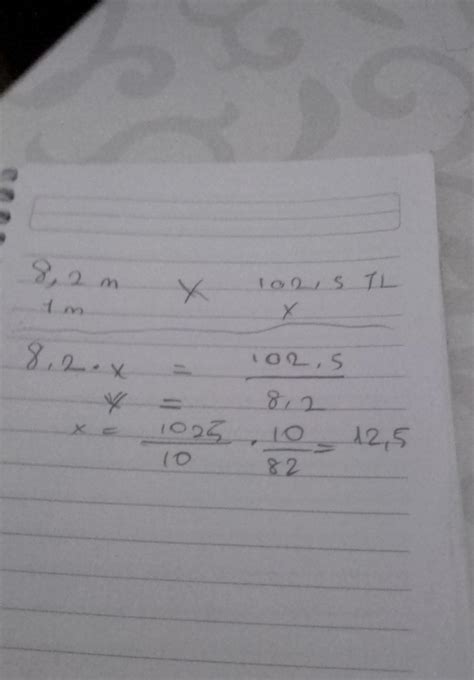 8,2 m X 102,5 TL
1 m x
8,2 . x = 102,5
x = 8,2
x = 1025/10 . 10/82 = 12,5